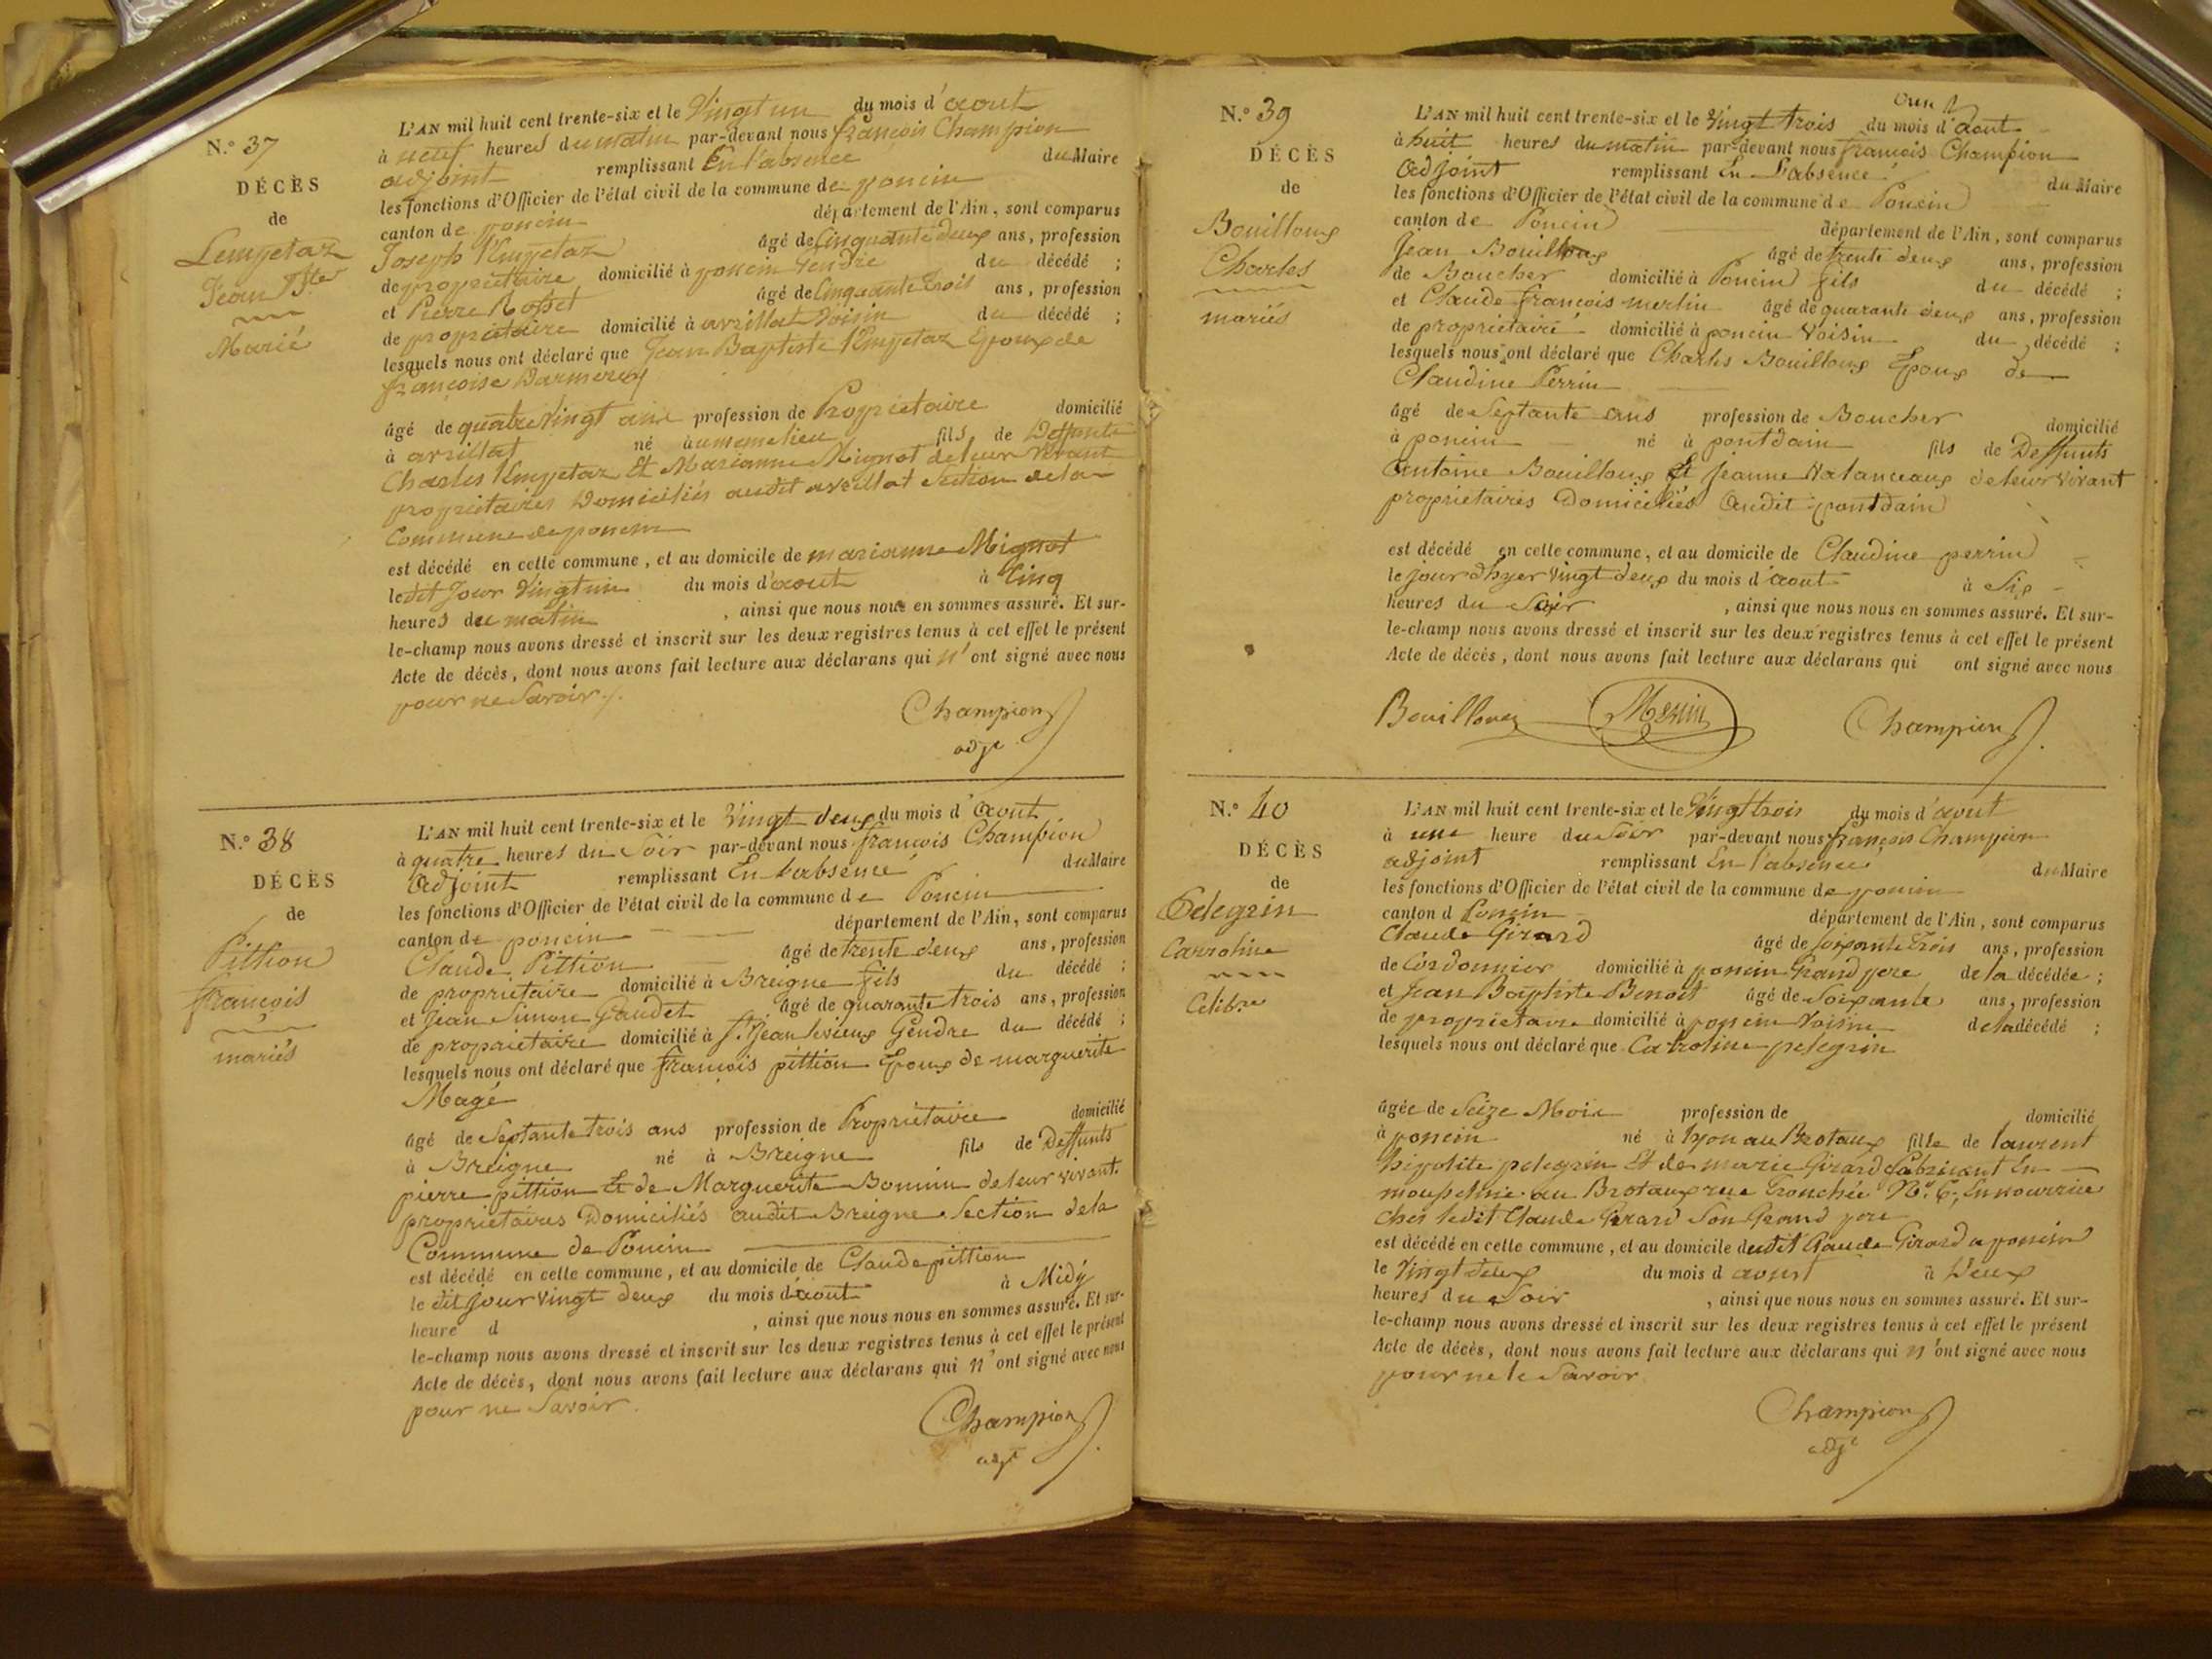 N.º 37
DÉCÈS
de
Lempetaz
Jean Bte
Marié
L'AN mil huit cent trente-six et le Vingt un du mois d'aout
à neuf heures du matin par-devant nous françois Champion
adjoint remplissant En l'absence du Maire
les fonctions d'Officier de l'état civil de la commune de poncin
canton de poncin département de l'Ain, sont comparus
Joseph Lempetaz âgé de Cinquante deux ans, profession
de propriettaire domicilié à poncin Gendre du décédé ;
et Pierre Rosset âgé de Cinquante trois ans, profession
de propriétaire domicilié à avrillat Voisin du décédé ;
lesquels nous ont déclaré que Jean Baptiste Lempetaz Epoux de
françoise Darmerey
âgé de quatre Vingt ans profession de Propriétaire domicilié
à avrillat né à au meme lieu fils de Deffunts
Charles Lempetaz Et Marianne Mignot de leur Vivant
propriétaires Domiciliés audit avrillat Section de la
Commune de poncin
est décédé en cette commune, et au domicile de marianne Mignot
le dit Jour Vingt un du mois d'aout à Cinq
heures du matin , ainsi que nous nous en sommes assuré. Et sur-
le-champ nous avons dressé et inscrit sur les deux registres tenus à cet effet le présent
Acte de décès, dont nous avons fait lecture aux déclarans qui n'ont signé avec nous
pour ne Savoir /.
Champion
adjt
N.º 38
DÉCÈS
de
Pittion
françois
mariés
L'AN mil huit cent trente-six et le Vingt deux du mois d'aout
à quatre heures du Soir par-devant nous françois Champion
adjoint remplissant En l'absence du Maire
les fonctions d'Officier de l'état civil de la commune de Poncin
canton de poncin département de l'Ain, sont comparus
Claude Pittion âgé de trente deux ans, profession
de propriétaire domicilié à Breigne fils du décédé ;
et Jean Simon Gaudet âgé de quarante trois ans, profession
de propriétaire domicilié à St. Jean levieux Gendre du décédé ;
lesquels nous ont déclaré que françois pittion Epoux de marguerite
Magé
âgé de Septante trois ans profession de Propriétaire domicilié
à Breigne né à Breigne fils de Deffunts
pierre pittion Et de Marguerite Bonnin de leur vivant
propriétaires Domiciliés audit Breigne Section de la
Commune de Poncin
est décédé en cette commune, et au domicile de Claude pittion
le dit Jour vingt deux du mois d'aout à Midy
heure d , ainsi que nous nous en sommes assuré. Et sur-
le-champ nous avons dressé et inscrit sur les deux registres tenus à cet effet le présent
Acte de décès, dont nous avons fait lecture aux déclarans qui n'ont signé avec nous
pour ne Savoir.
Champion
adjt
N.º 39
DÉCÈS
de
Bouilloux
Charles
mariés
L'AN mil huit cent trente-six et le Vingt trois du mois d'aout
à huit heures du matin par-devant nous françois Champion
Adjoint remplissant En L'absence du Maire
les fonctions d'Officier de l'état civil de la commune de Poncin
canton de Poncin département de l'Ain, sont comparus
Jean Bouilloux âgé de trente deux ans, profession
de Boucher domicilié à Poncin fils du décédé ;
et Claude françois merlin âgé de quarante deux ans, profession
de propriétaire domicilié à poncin Voisin du décédé ;
lesquels nous ont déclaré que Charles Bouilloux Epoux de
Claudine Perrin
âgé de Septante ans profession de Boucher domicilié
à poncin né à pontdain fils de Deffunts
Antoine Bouilloux Et Jeanne Valanceaux de leur Vivant
propriétaires Domiciliés Audit pontdain
est décédé en cette commune, et au domicile de Claudine perrin
le jour dhyer vingt deux du mois d'aout à Six
heures du Soir , ainsi que nous nous en sommes assuré. Et sur-
le-champ nous avons dressé et inscrit sur les deux registres tenus à cet effet le présent
Acte de décès, dont nous avons fait lecture aux déclarans qui ont signé avec nous
Bouilloux Merlin Champion
N.º 40
DÉCÈS
de
Pelegrin
Carroline
Célibre
L'AN mil huit cent trente-six et le Vingt trois du mois d'aout
à une heure du Soir par-devant nous françois Champion
adjoint remplissant En l'absence du Maire
les fonctions d'Officier de l'état civil de la commune de poncin
canton d Poncin département de l'Ain, sont comparus
Claude Girard âgé de Soixante Trois ans, profession
de Cordonnier domicilié à poncin Grand pere de la décédée ;
et Jean Baptiste Benoit âgé de Soixante ans, profession
de propriétaire domicilié à poncin Voisin de la décédé ;
lesquels nous ont déclaré que Carroline pelegrin
âgée de Seize Mois profession de domicilié
à poncin né à lyon au Brotaux fille de laurent
hipolite pelegrin Et de marie Girard fabricant En
mousseline au Brotaux rue Tronchée N.º 6, En nourrice
ches ledit Claude Girard Son Grand pere
est décédé en cette commune, et au domicile dudit Claude Girard a poncin
le Vingt deux du mois d aout à Deux
heures du Soir , ainsi que nous nous en sommes assuré. Et sur-
le-champ nous avons dressé et inscrit sur les deux registres tenus à cet effet le présent
Acte de décès, dont nous avons fait lecture aux déclarans qui n'ont signé avec nous
pour ne le Savoir
Champion
adjt